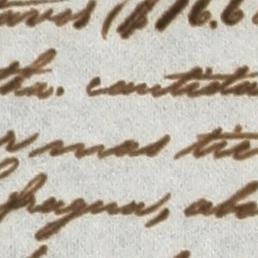 tavos ($16.6
tha. cantida
rmas tie
fragua, aba